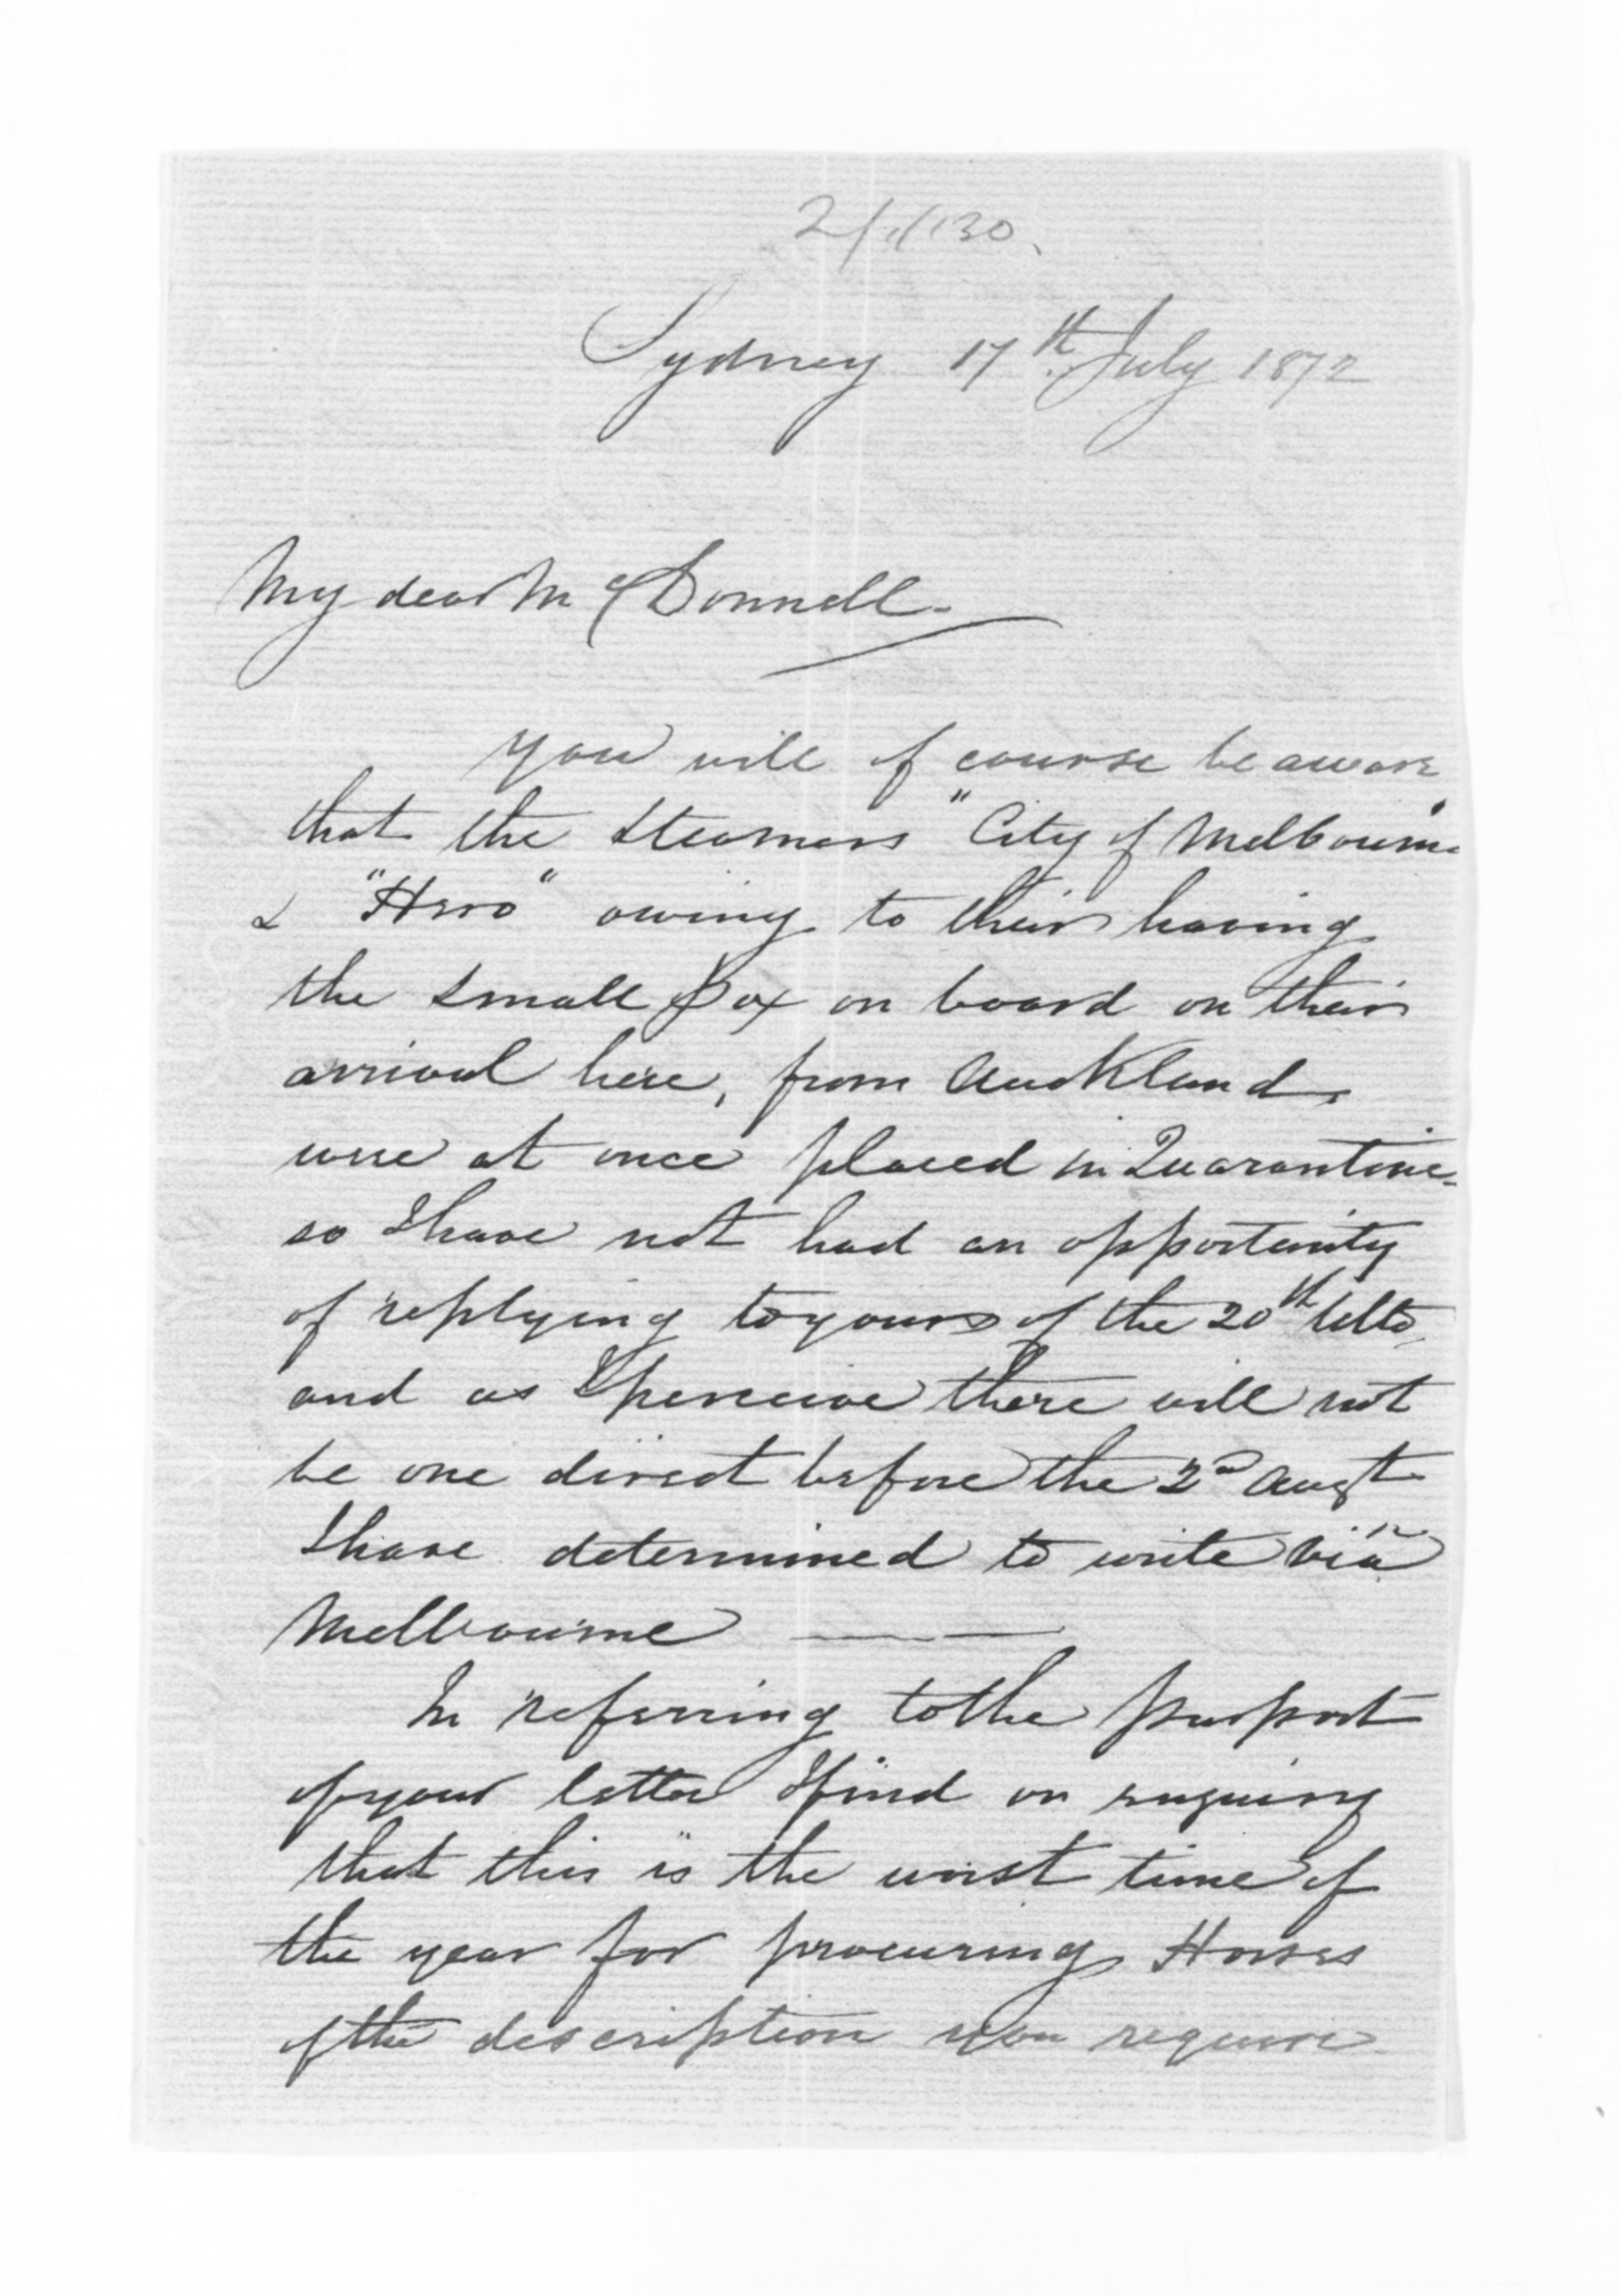 Sydney 17th July 1872
My dear McDonnell.
You will of course be aware
that the Steamers "City of Melbourne"
& "Hero" owing to their having
the Small Pox on board on their
arrival here, from Auckland,
were at once placed in Quarantine
so I have not had an opportunity
of replying to yours of the 20th Ulto
and as I perceive there will not
be one direct before the 2d Augt
I have determined to write via
Melbourne
In referring to the purport
of your letter I find on enquiring
that this is the worst time of
the year for procuring Horses
of the description you require